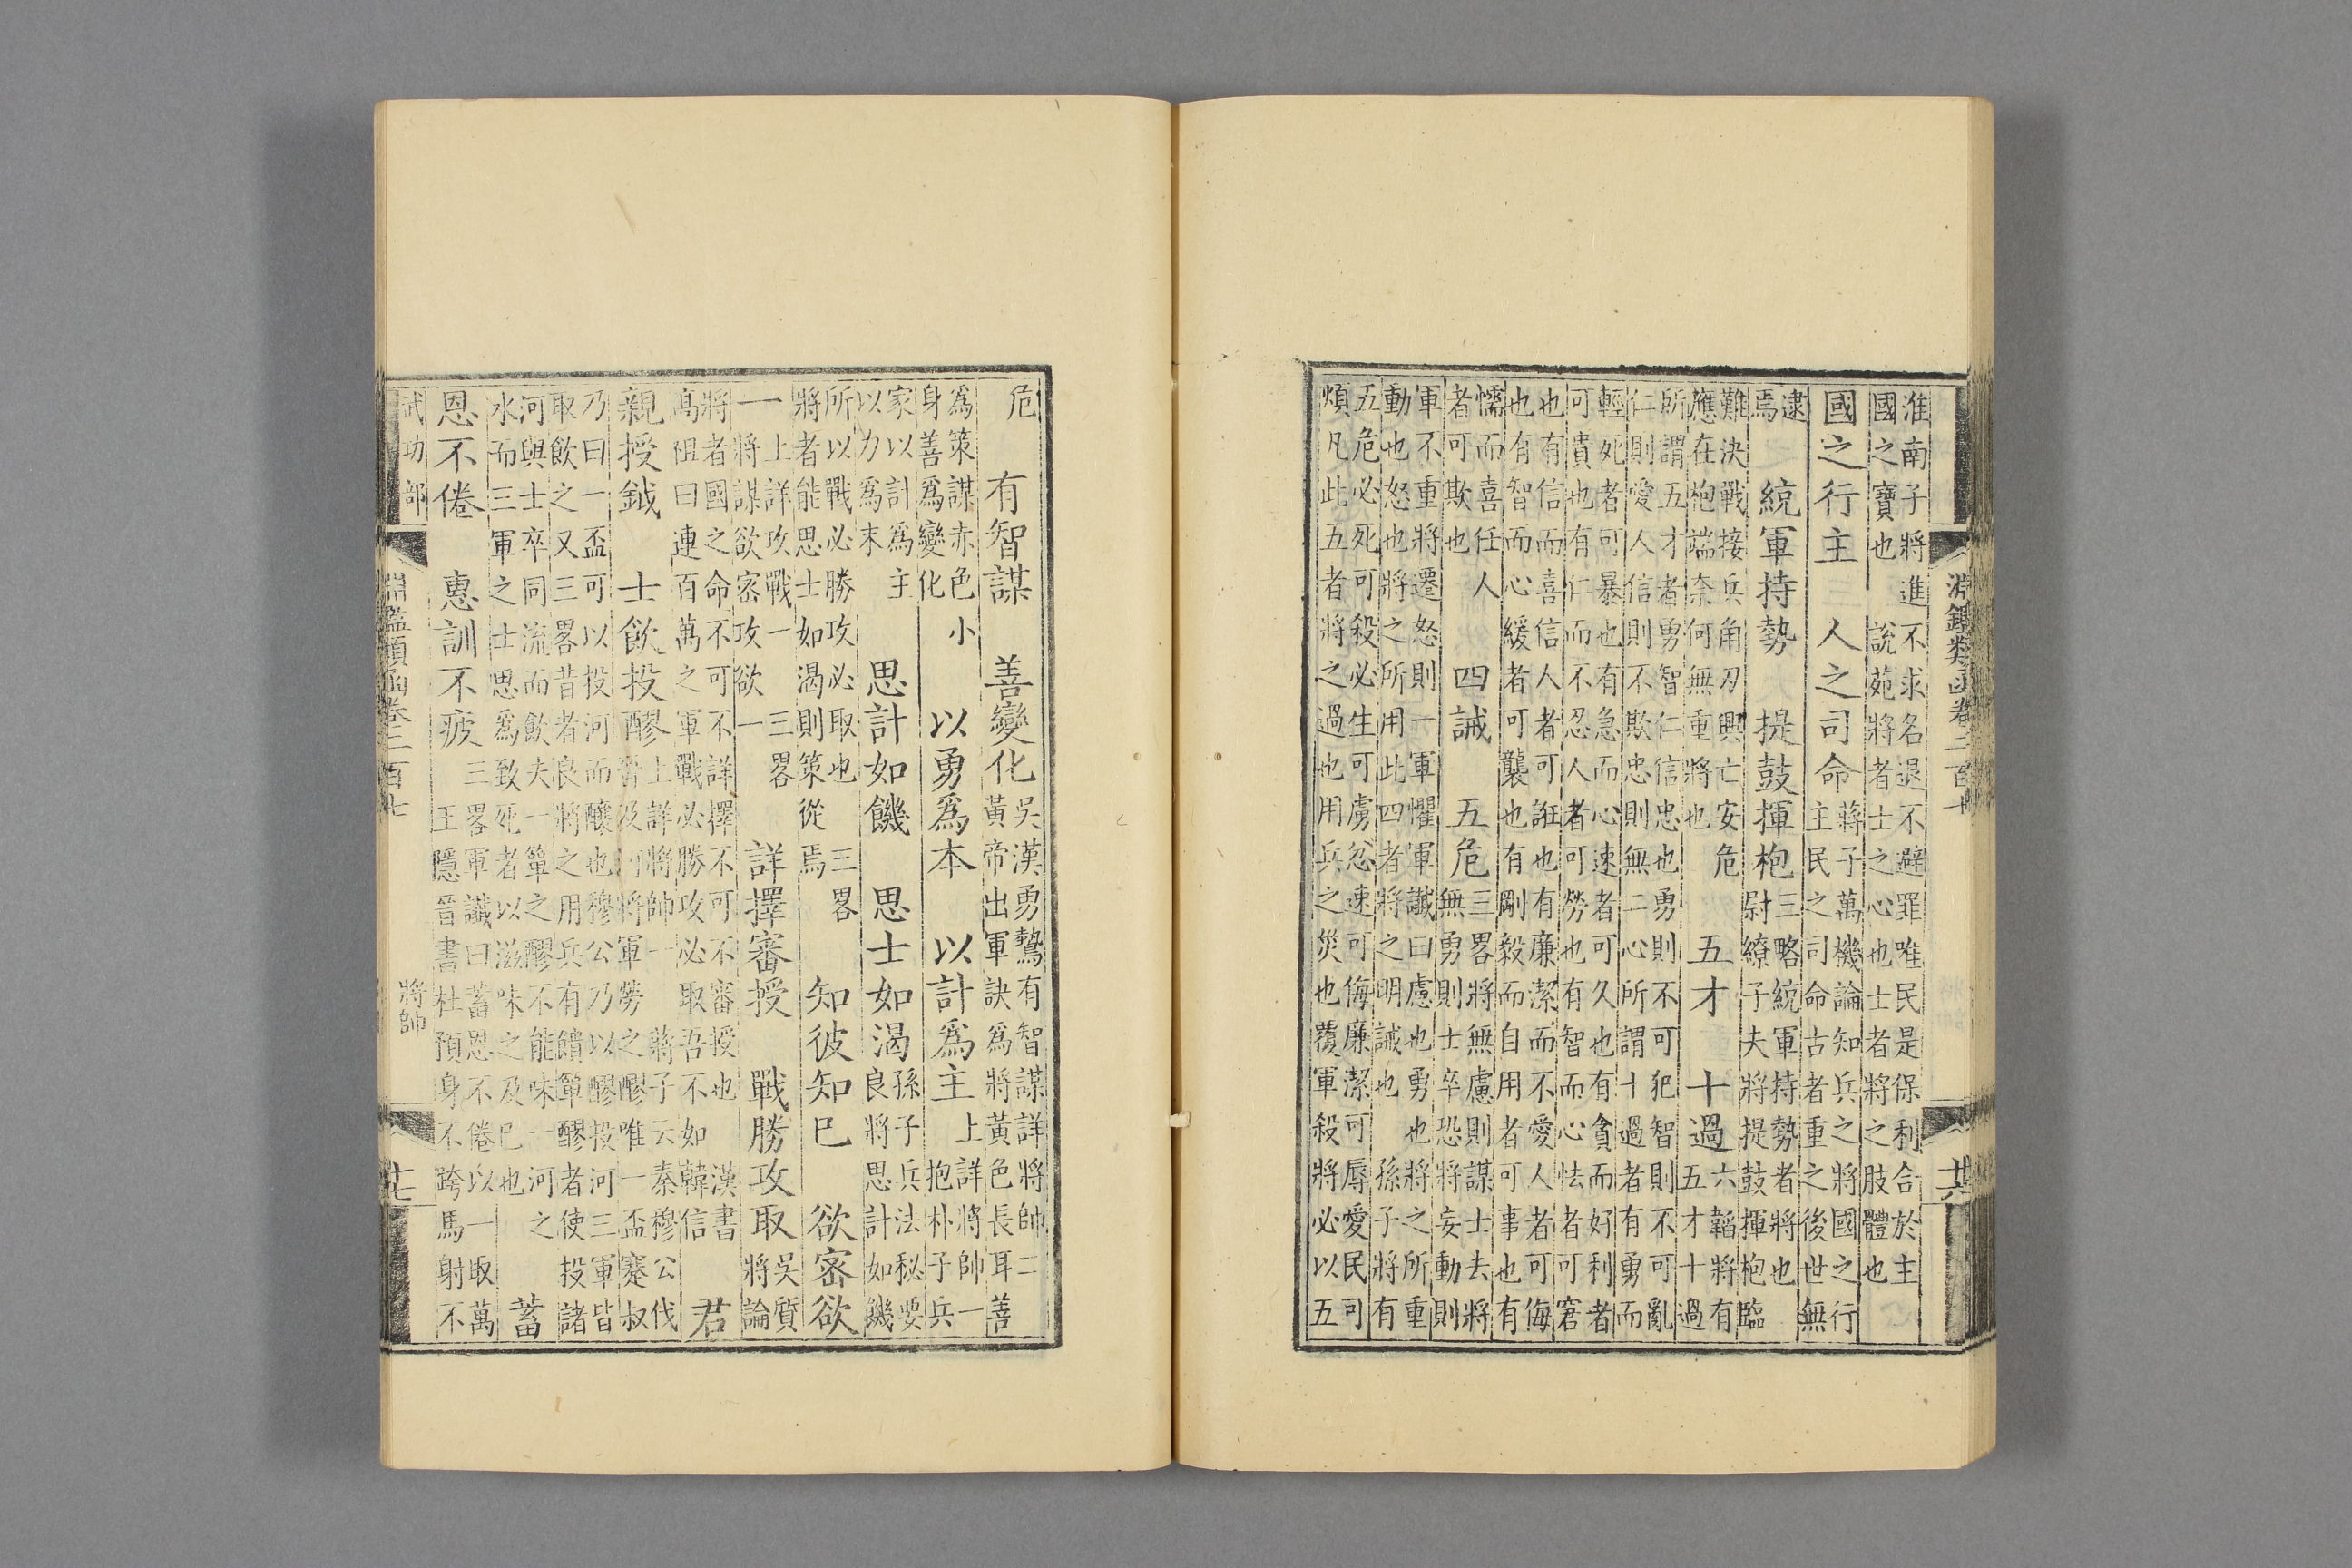 淵鑑類函卷二百七 十六
淮南子將進不求名退不避罪唯民是保利合於主
國之寶也 說苑將者士之心也士者將之肢體也
國之行主 人之司命
蔣子萬機論知兵之將國之行
主民之司命古者重之後世無
逮
焉
統軍持勢 提鼓揮枹
三略統軍持勢者將也
尉繚子夫將提鼓揮枹臨
難決戰接兵角刃興亡安危
應在枹端奈何無重將也
五才 十過
六韜將有
五才十過
所謂五才者勇智仁信忠也勇則不可犯智則不可亂
仁則愛人信則不欺忠則無二心所謂十過者有勇而
輕死者可暴也有急而心速者可久也有貪而好利者
可貴也有仁而不忍人者可勞也有智而心怯者可窘
也有信而喜信人者可誑也有廉潔而不愛人者可侮
也有智而心緩者可襲也有剛毅而自用者可事也有
懦而喜任人
者可欺也
四誡 五危
三畧將無慮則謀士去將
無勇則士卒恐將妄動則
軍不重將遷怒則一軍懼軍讖曰慮也勇也將之所重
動也怒也將之所用此四者將之明誡也 孫子將有
五危必死可殺必生可虜忿速可侮廉潔可辱愛民可
煩凡此五者將之過也用兵之災也覆軍殺將必以五
危
有智謀 善變化
吳漢勇鷙有智謀詳將帥二
黃帝出軍訣爲將黃色長耳善
爲策謀赤色小
身善爲變化
以勇爲本 以計爲主
上詳將帥一
抱朴子兵
家以計爲主
以力爲末
思計如饑 思士如渴
孫子兵法秘要
良將思計如饑
所以戰必勝攻必取也 三畧
將者能思士如渴則策從焉
知彼知已 欲密欲
一
上詳攻戰一 三畧
將謀欲密攻欲一
詳擇審授 戰勝攻取
吳質
將論
將者國之命不可不詳擇不可不審授也 漢書
高祖曰連百萬之軍戰必勝攻必取吾不如韓信
君
親授鉞 士飲投醪
上詳將帥一 蔣子云秦穆公伐
晉及河將軍勞之醪唯一盃蹇叔
乃曰一盃可以投河而釀也穆公乃以醪投河三軍皆
取飲之又三畧昔者良將之用兵有饋簞醪者使投諸
河與士卒同流而飲夫一簞之醪不能味一河之
水而三軍之士思爲致死者以滋味之及已也
蓄
恩不倦 惠訓不疲
三畧軍讖曰蓄恩不倦以一取萬
王隱晉書杜預身不跨馬射不
武功部 淵鑑類函卷二百七 將帥 十七